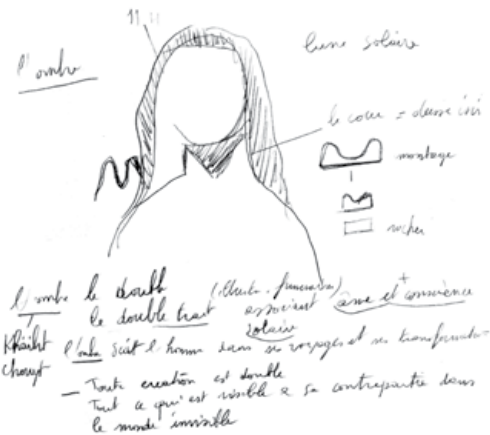 l'ombre
lune solaire
le cœur = déesse isis
montagne
rocher
l'ombre le double
le double trait associant âme et conscience
solaire
Khaïbit l'ombre suit l'homme dans ses voyages et ses
— Toute création est double
Tout ce qui est visible a sa contrepartie dans
le monde invisible